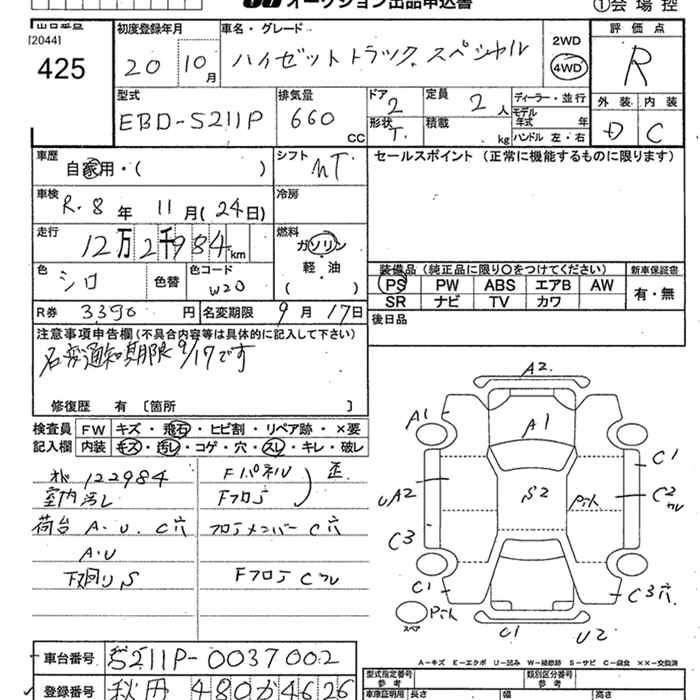 オークション出品申込書
①会場控
出品番号
[2044]
425
初度登録年月
20 10月
車名・グレード
ハイゼットトラック スペシャル
2WD
4WD
評価点
R
外装 内装
D C
型式
EBD-S211P
排気量
660 CC
ドア
2
形状
T.
定員
2人
積載
kg
ディーラー・並行
モデル年式 年
ハンドル 左・右
車歴
自家用・( )
シフト
MT
セールスポイント (正常に機能するものに限ります)
車検
R.8年 11月(24日)
冷房
走行
12万2千984km
燃料
ガソリン
軽・油
( )
色
シロ
色替
色コード
W20
装備品 (純正品に限り○をつけてください)
PS PW ABS エアB AW
SR ナビ TV カワ
新車保証書
有・無
R券 3390円
名変期限 9月17日
後日品
注意事項申告欄 (不具合内容等は具体的に記入して下さい)
名変通知期限9/17です
修復歴 有 〔箇所 〕
検査員記入欄
FW キズ・飛石・ヒビ割・リペア跡・×要
内装 キズ・汚レ・コゲ・穴・スレ・キレ・破レ
オド 122984
室内汚レ
荷台 A.U.C穴
A.U
下廻りS
Fパネル
Fフロア
歪
フロアメンバー C穴
Fフロア Cクレ
A2
A1
A1
C1
UA2
S2
Pキト
C2
クレ
C3
C1
C3穴
Pキト
スペア
C1
U2
A-キズ E-エクボ U-凹み W-補修跡 S-サビ C-腐食 ××-交換済
車台番号
S211P-0037002
登録番号
秋田 480か4626
型式指定番号
参考
類別区分番号
参考
車庫証明用
長さ
幅
高さ